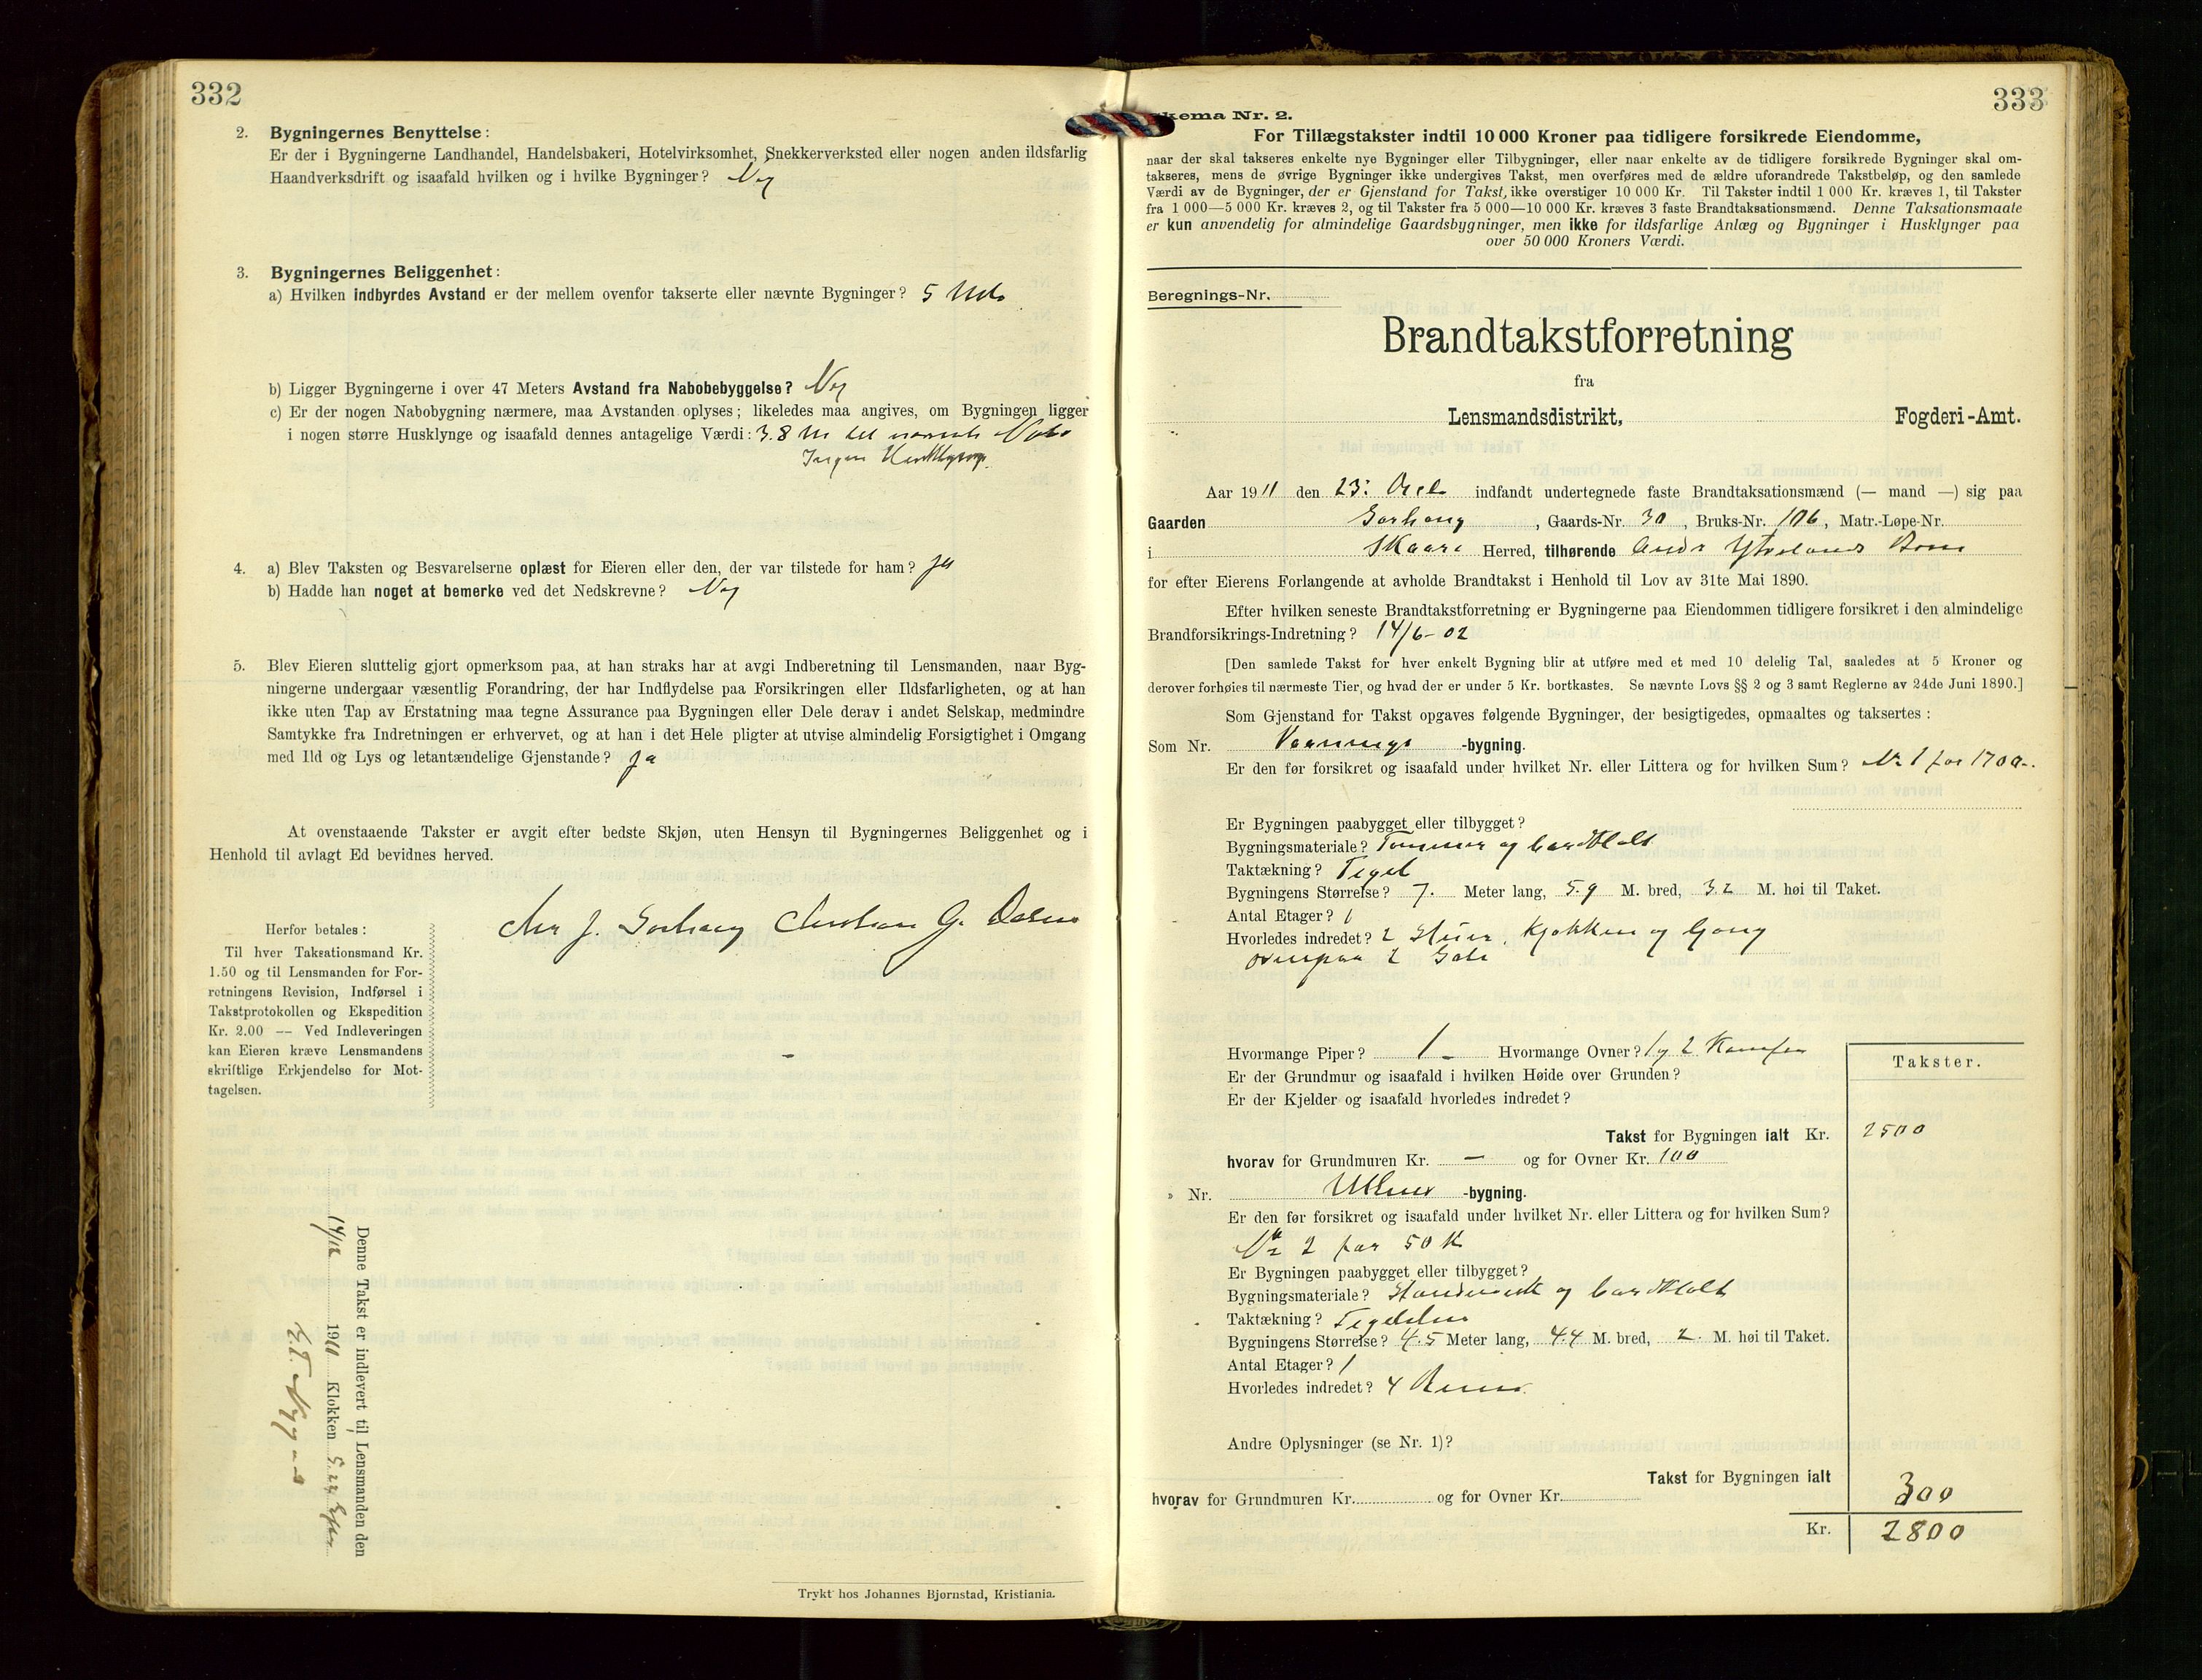 332
2. Bygningernes Benyttelse:
Er der i Bygningerne Landhandel, Handelsbakeri, Hotelvirksomhet, Snekkerverksted eller nogen anden ildsfarlig
Haandverksdrift og isaafald hvilken og i hvilke Bygninger? Nej
3. Bygningernes Beliggenhet:
a) Hvilken indbyrdes Avstand er der mellem ovenfor takserte eller nævnte Bygninger? 5
b) Ligger Bygningerne i over 47 Meters Avstand fra Nabobebyggelse? Nej
c) Er der nogen Nabobygning nærmere, maa Avstanden oplyses; likeledes maa angives, om Bygningen ligger
i nogen større Husklynge og isaafald dennes antagelige Værdi: 3.8 M til
4. a) Blev Taksten og Besvarelserne oplæst for Eieren eller den, der var tilstede for ham? ja
b) Hadde han noget at bemerke ved det Nedskrevne? Nej
5. Blev Eieren sluttelig gjort opmerksom paa, at han straks har at avgi Indberetning til Lensmanden, naar Byg-
ningerne undergaar væsentlig Forandring, der har Indflydelse paa Forsikringen eller Ildsfarligheten, og at han
ikke uten Tap av Erstatning maa tegne Assurance paa Bygningen eller Dele derav i andet Selskap, medmindre
Samtykke fra Indretningen er erhvervet, og at han i det Hele pligter at utvise almindelig Forsigtighet i Omgang
med Ild og Lys og letantændelige Gjenstande? Ja
At ovenstaaende Takster er avgit efter bedste Skjøn, uten Hensyn til Bygningernes Beliggenhet og i
Henhold til avlagt Ed bevidnes herved.
Herfor betales:
Til hver Taksationsmand Kr.
1.50 og til Lensmanden for For-
retningens Revision, Indførsel i
Takstprotokollen og Ekspedition
Kr. 2.00 — Ved Indleveringen
kan Eieren kræve Lensmandens
skriftlige Erkjendelse for Mot-
tagelsen.
Denne Takst er indlevert til Lensmanden den
14/12 1911 Klokken
Trykt hos Johannes Bjørnstad, Kristiania.
333
kema Nr. 2.
For Tillægstakster indtil 10 000 Kroner paa tidligere forsikrede Eiendomme,
naar der skal takseres enkelte nye Bygninger eller Tilbygninger, eller naar enkelte av de tidligere forsikrede Bygninger skal om-
takseres, mens de øvrige Bygninger ikke undergives Takst, men overføres med de ældre uforandrede Takstbeløp, og den samlede
Værdi av de Bygninger, der er Gjenstand for Takst, ikke overstiger 10 000 Kr. Til Takster indtil 1 000 Kr. kræves 1, til Takster
fra 1 000—5 000 Kr. kræves 2, og til Takster fra 5 000—10 000 Kr. kræves 3 faste Brandtaksationsmænd. Denne Taksationsmaate
er kun anvendelig for almindelige Gaardsbygninger, men ikke for ildsfarlige Anlæg og Bygninger i Husklynger paa
over 50 000 Kroners Værdi.
Beregnings-Nr.
Brandtakstforretning
fra
Lensmandsdistrikt, Fogderi-Amt.
Aar 1911 den 23. indfandt undertegnede faste Brandtaksationsmænd (— mand —) sig paa
Gaarden Sørhaug, Gaards-Nr. 30, Bruks-Nr. 106, Matr.-Løpe-Nr.
i Skaare Herred, tilhørende
for efter Eierens Forlangende at avholde Brandtakst i Henhold til Lov av 31te Mai 1890.
Efter hvilken seneste Brandtakstforretning er Bygningerne paa Eiendommen tidligere forsikret i den almindelige
Brandforsikrings-Indretning? 14/6-02
[Den samlede Takst for hver enkelt Bygning blir at utføre med et med 10 delelig Tal, saaledes at 5 Kroner og
derover forhøies til nærmeste Tier, og hvad der er under 5 Kr. bortkastes. Se nævnte Lovs §§ 2 og 3 samt Reglerne av 24de Juni 1890.]
Som Gjenstand for Takst opgaves følgende Bygninger, der besigtigedes, opmaaltes og taksertes:
Som Nr. Vaanings-bygning.
Er den før forsikret og isaafald under hvilket Nr. eller Littera og for hvilken Sum? Nr 1 for 1700.
Er Bygningen paabygget eller tilbygget?
Bygningsmateriale? Tømmer og bordklædt
Taktækning? Tegel
Bygningens Størrelse? 7. Meter lang, 5.9 M. bred, 3.2 M. høi til Taket.
Antal Etager? 1
Hvorledes indredet? 2 Stuer, Kjøkken og Gang
ovenpaa 2
Hvormange Piper? 1 Hvormange Ovner? 1 og 2
Er der Grundmur og isaafald i hvilken Høide over Grunden?
Er der Kjelder og isaafald hvorledes indredet?
Takster.
Takst for Bygningen ialt Kr. 2500
hvorav for Grundmuren Kr. — og for Ovner Kr. 100
» Nr. Uthus-bygning.
Er den før forsikret og isaafald under hvilket Nr. eller Littera og for hvilken Sum?
Nr 2 for 50 K
Er Bygningen paabygget eller tilbygget?
Bygningsmateriale? Standverk og bordklædt
Taktækning? Tegelsten
Bygningens Størrelse? 4.5 Meter lang, 4.4 M. bred, 2. M. høi til Taket.
Antal Etager? 1
Hvorledes indredet? 4 Rum
Andre Oplysninger (se Nr. 1)?
Takst for Bygningen ialt 300
hvorav for Grundmuren Kr. og for Ovner Kr.
Kr. 2800